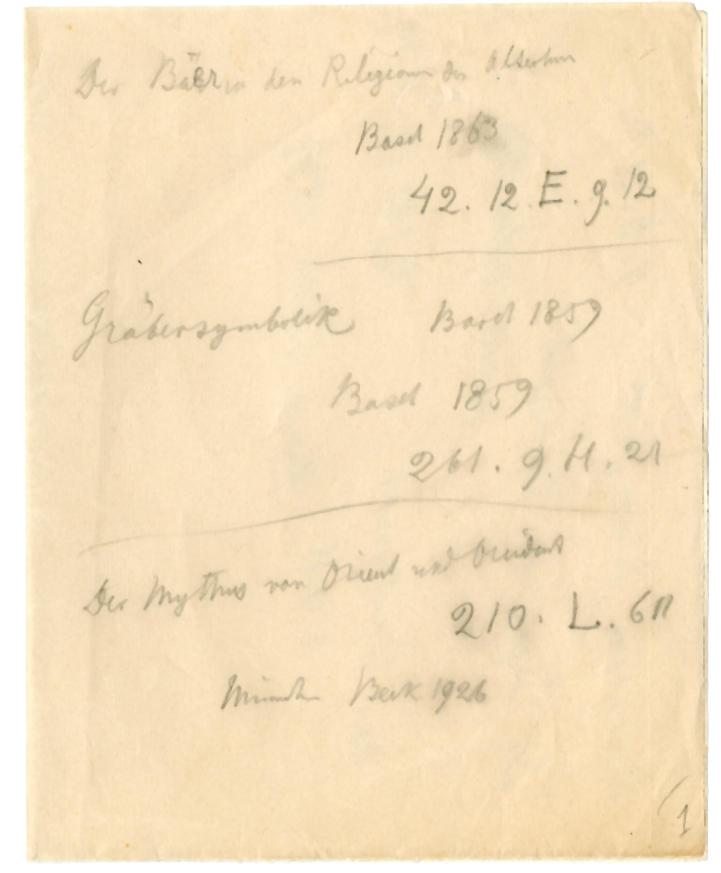 Der Bäer in den Religionen des Altertums
Basel 1863
42. 12. E. g. 12
Gräbersymbolik Basel 1859
Basel 1859
261. g. H. 21
Der Mythus von Orient und Occident
210. L. 611
München Beck 1926
(1